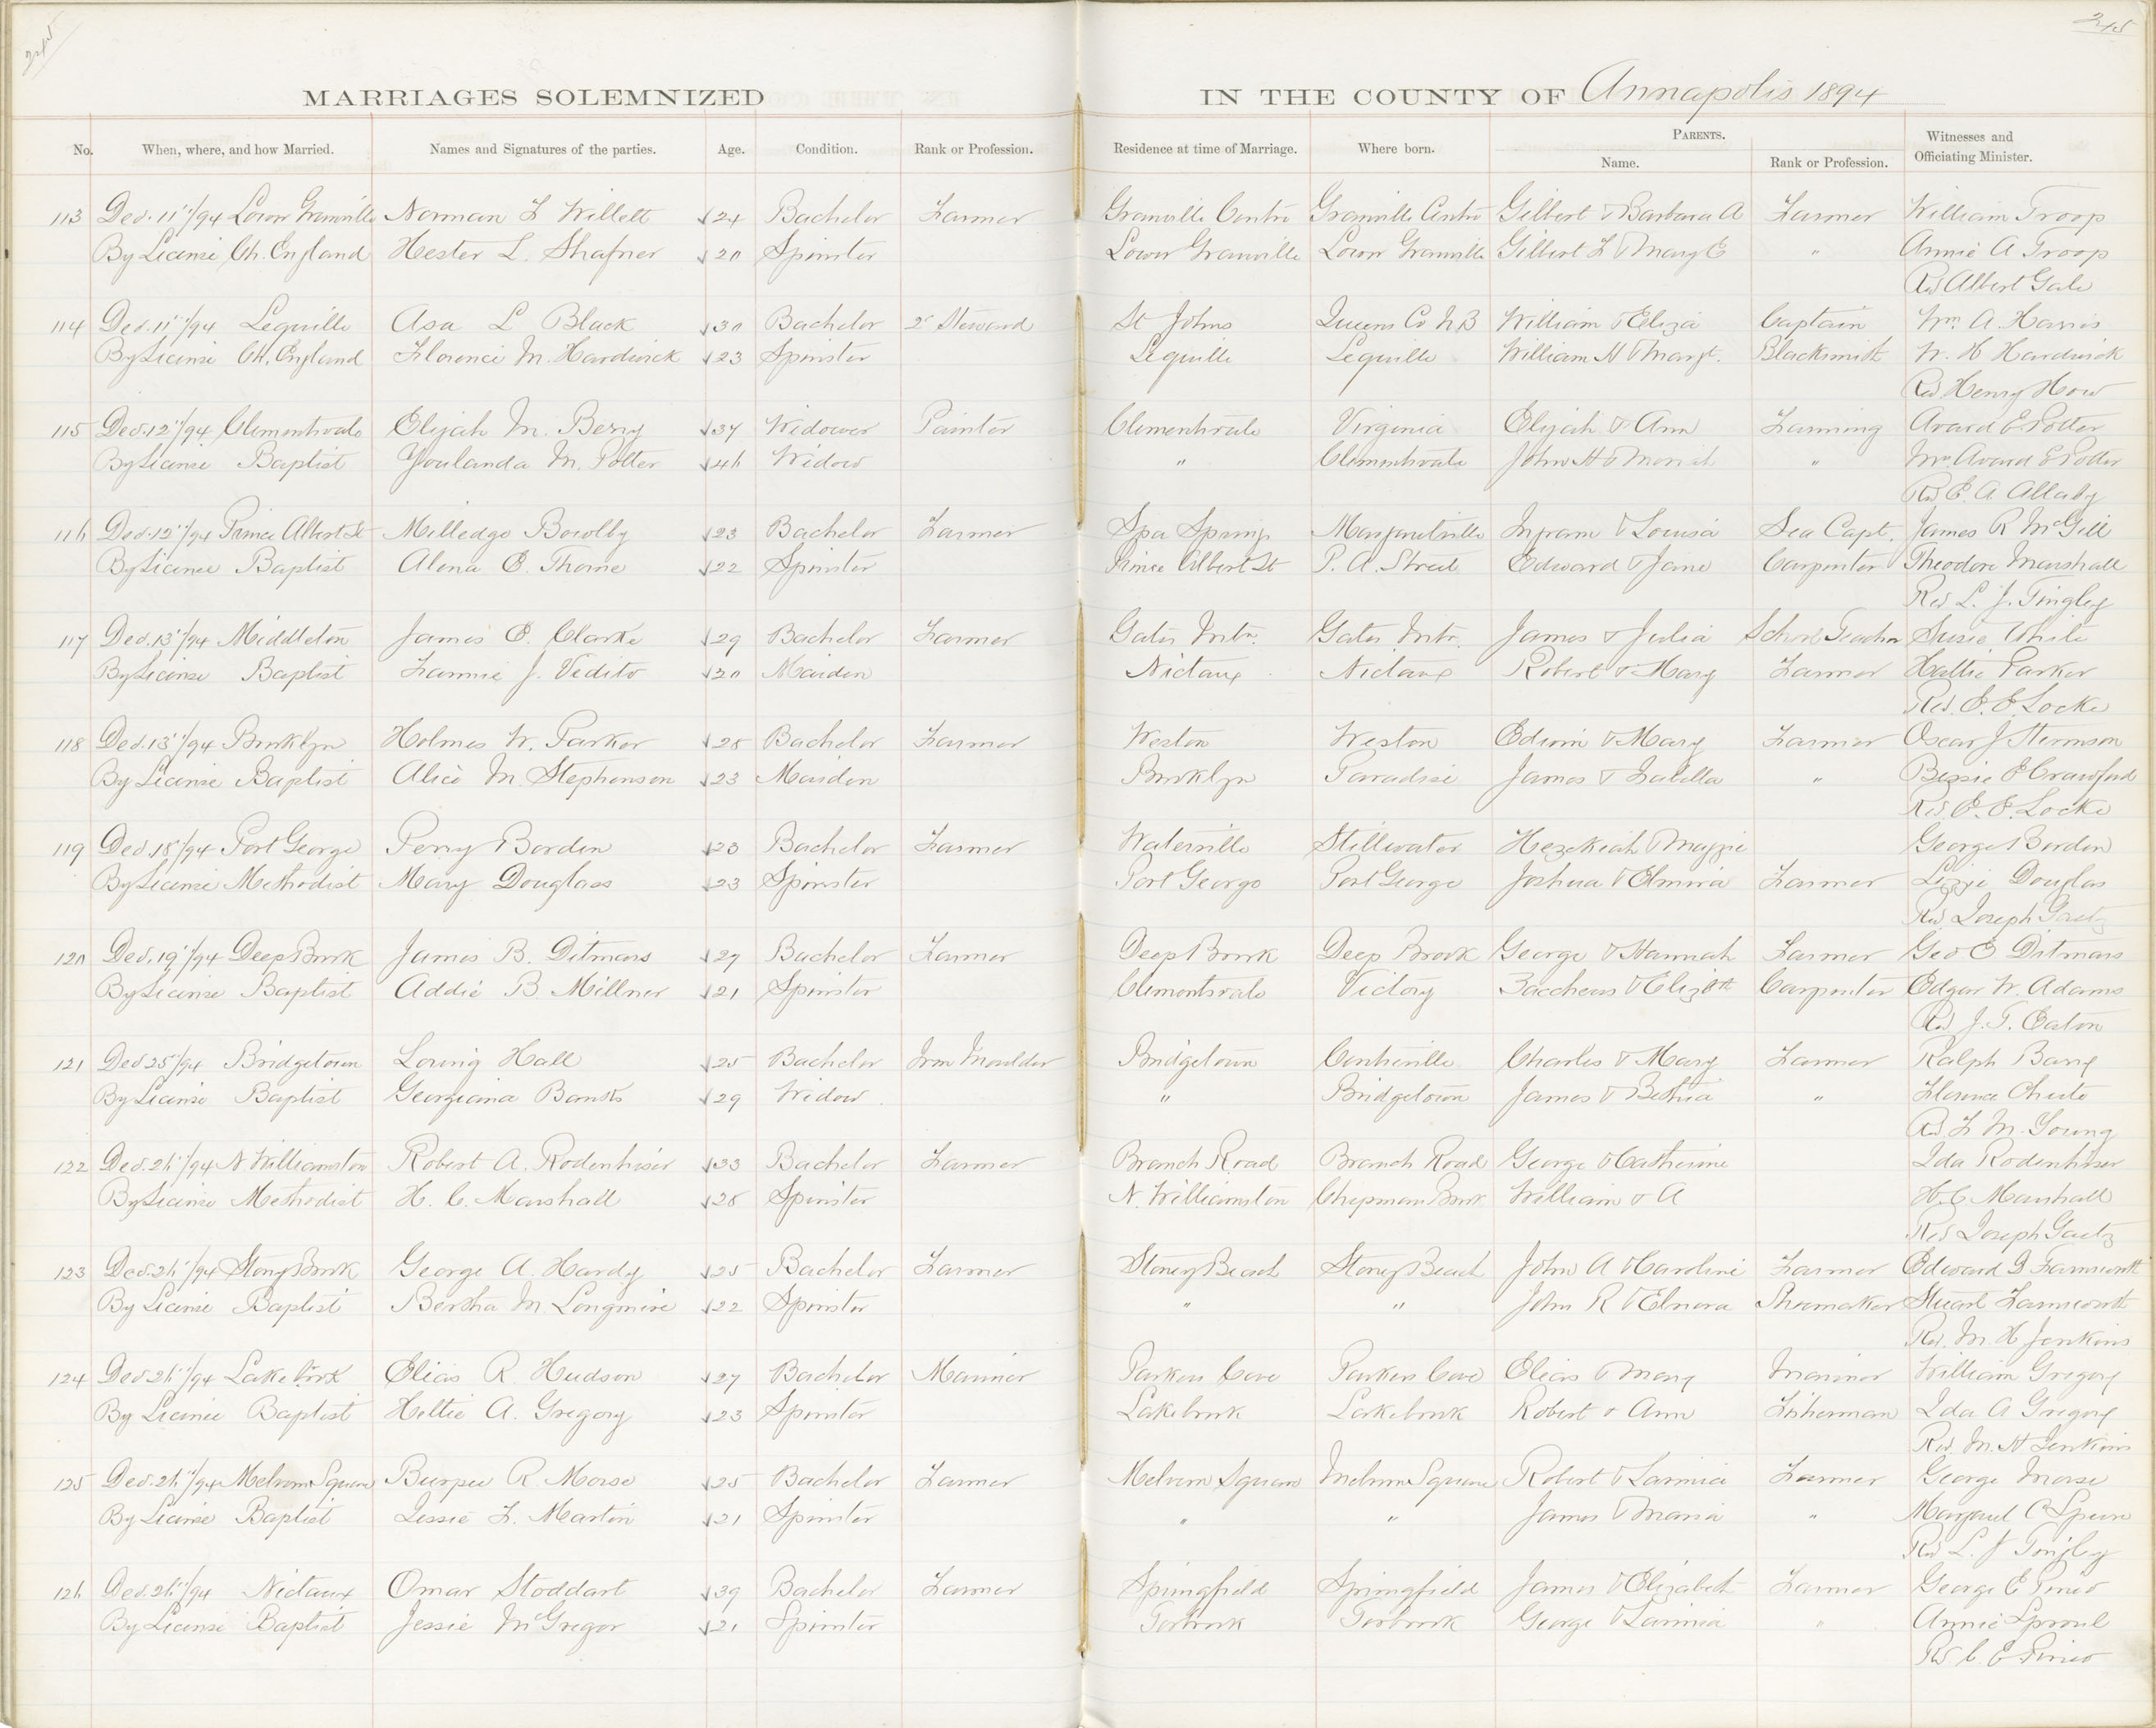 245
245
MARRIAGES SOLEMNIZED IN THE COUNTY OF Annapolis 1894
No. When, where, and how Married. Names and Signatures of the parties. Age. Condition. Rank or Profession. Residence at time of Marriage. Where born. PARENTS. Name. Rank or Profession. Witnesses and Officiating Minister.
113 Dec. 11"/94 Lower Granville Norman F Willett 24 Bachelor Farmer Granville Centre Granville Centre Gilbert & Barbara A Farmer William Troop
By License Ch. England Hester L. Shafner 20 Spinster Lower Granville Lower Granville Gilbert F & Mary E " Annie A Troop
Rev Albert Gale
114 Dec. 11"/94 Lequille Asa L Black 30 Bachelor 2d Steward St Johns Queens Co N B William & Eliza Captain Wm. A. Harris
By License Ch. England Florence M. Hardwick 23 Spinster Lequille Lequille William H & Margt. Blacksmith W. H Hardwick
Rev Henry How
115 Dec. 12"/94 Clementsvale Elijah M. Berry 37 Widower Painter Clementsvale Virginia Elijah & Ann Farming Avard E Potter
By License Baptist Youlanda M. Potter 46 Widow " Clementsvale John H & Moriah " Mrs Avard E Potter
Rev E. A. Allaby
116 Dec. 12"/94 Prince Albert St Milledge Bowlby 23 Bachelor Farmer Spa Springs Margaretville Ingram & Louisa Sea Capt. James R McGill
By License Baptist Alena E. Thorne 22 Spinster Prince Albert St P. A. Street Edward & Jane Carpenter Theodore Marshall
Rev L. J. Tingley
117 Dec. 13"/94 Middleton James E. Clarke 29 Bachelor Farmer Gates Mtn. Gates Mtn. James & Julia School Teacher Susie White
By License Baptist Fannie J. Vedito 20 Maiden Nictaux Nictaux Robert & Mary Farmer Hattie Parker
Rev. E. E. Locke
118 Dec. 13"/94 Brooklyn Holmes W. Parker 28 Bachelor Farmer Weston Weston Edwin & Mary Farmer Oscar J
By License Baptist Alice M. Stephenson 23 Maiden Brooklyn Paradise James & Isabella " Bessie E Crawford
Rev. E. E. Locke
119 Dec. 18"/94 Port George Perry Borden 23 Bachelor Farmer Waterville Stillwater Hezekiah & Maggie George Borden
By License Methodist Mary Douglass 23 Spinster Port George Port George Joshua & Elmira Farmer Lizzie Douglas
Rev Joseph Gaetz
120 Dec. 19"/94 Deep Brook James B. Ditmars 27 Bachelor Farmer Deep Brook Deep Brook George & Hannah Farmer Geo E Ditmars
By License Baptist Addie B Millner 21 Spinster Clementsvale Victory Zaccheus & Elizbth Carpenter Edgar W. Adams
Rev J. T. Eaton
121 Dec 25"/94 Bridgetown Loring Hall 25 Bachelor Iron Moulder Bridgetown Centreville Charles & Mary Farmer Ralph
By License Baptist Georgiana Banks 29 Widow " Bridgetown James & Bethia " Florence Chute
Rev. F. M. Young
122 Dec. 26"/94 N. Williamston Robert A. Rodenhiser 33 Bachelor Farmer Branch Road Branch Road George & Catherine Ida Rodenhiser
By License Methodist H. C. Marshall 28 Spinster N. Williamston Chipman Brook William & A H. C Marshall
Rev Joseph Gaetz
123 Dec. 26"/94 Stony Brook George A. Hardy 25 Bachelor Farmer Stoney Beach Stoney Beach John A & Caroline Farmer Edward D Farnsworth
By License Baptist Bertha M Longmire 22 Spinster " " John R & Elnora Shoemaker Stuart Farnsworth
Rev. M. H Jenkins
124 Dec 26"/94 Lake brook Elias R Hudson 27 Bachelor Mariner Parkers Cove Parkers Cove Elias & Mary Mariner William Gregory
By License Baptist Hettie A. Gregory 23 Spinster Lakebrook Lakebrook Robert & Ann Fisherman Ida A Gregory
Rev. M. H Jenkins
125 Dec. 26"/94 Melvern Square Burpee R Morse 25 Bachelor Farmer Melvern Square Melvern Square Robert & Lavinia Farmer George Morse
By License Baptist Lessie F. Martin 21 Spinster " " James & Maria " Margaret C
Rev L. J Tingley
126 Dec. 26"/94 Nictaux Omar Stoddart 39 Bachelor Farmer Springfield Springfield James & Elizabeth Farmer George E Pineo
By License Baptist Jessie McGregor 21 Spinster Torbrook Torbrook George & Lavinia " Annie Sproul
Rev. C. E Pineo